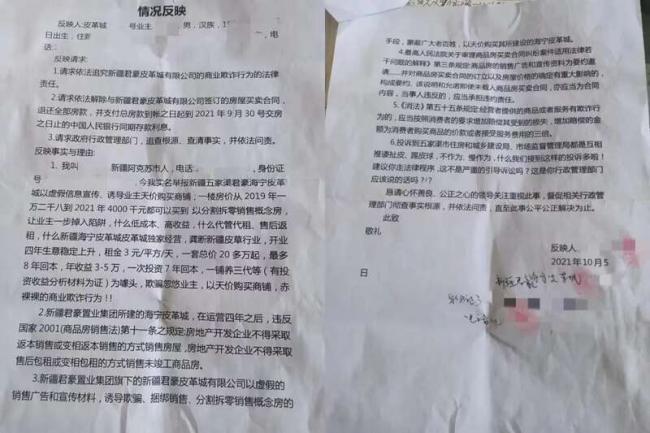 情况反映
反映人:皮革城 号业主 男，汉族，1
日出生，住 ，电
话：
反映请求:
1.请求依法追究新疆君豪皮革城有限公司的商业欺诈行为的法律
责任。
2.请求依法解除与新疆君豪皮革城有限公司签订的房屋买卖合同，
退还全部房款，并支付总房款到帐之日起到 2021 年 9 月 30 号交房
之日止的中国人民银行同期存款利息。
3.请求政府行政管理部门、追查根源、查清事实，并依法问责。
反映事实与理由:
1. 我叫 新疆阿克苏市人，电话 ，身份证
号 ，今我实名举报新疆五家渠君豪海宁皮革
城以虚假信息宣传、诱导业主天价购买商铺，一楼房价从 2019 年一
万二千八到 2021 年 4000 千元都可以买到 以分割拆零销售概念房，
让业主一步掉入陷阱，什么低成本、高收益，什么代管代租、售后返
租，什么新疆海宁皮革城皮革城独家经营，龚断新疆皮草行业，开业
四年生意稳定上升，租金 3 元/平方/天，一套总价 20 多万起，最多
8 年回本，年收益 3-5 万，一次投资 7 年回本，一铺养三代等（有投
资收益分析材料为证）为噱头，欺骗忽悠业主，以天价购买商铺，赤
裸裸的商业欺诈行为!!
2.新疆君豪置业集团所建的海宁皮革城，在运营四年之后，违反
国家 2001(商品房销售法)第十一条之规定:房地产开发企业不得采取
返本销售或变相返本销售的方式销售房屋，房地产开发企业不得采取
售后包租或变相包租的方式销售未竣工商品房。
3.新疆君豪置业集团旗下的新疆君豪皮革城有限公司以虚假的
销售广告和宣传材料，诱导欺骗、捆绑销售、分割拆零销售概念房的
手段，蒙蔽广大老百姓，以天价购买其所建设的海宁皮革城。
4.最高人民法院关于审理商品房买卖合同纠纷案件适用法律若
干问题的解释》第三条规定:商品房的销售广告和宣传资料为要约邀
请——并对商品房买卖合同的订立以及房屋价格的确定有重大影响的，
构成要约，该说明和允诺即使未载入商品房买卖合同，亦应当为合同
内容，当事人违反的，应当承担违约责任。
5.《消法》第五十五条规定:经营者提供的商品或者服务有欺诈行
为的，应当按照消费者的要求增加赔偿其受到的损失，增加赔偿的金
额为消费者购买商品的价款或者接受服务费用的三倍。
6.投诉到五家渠市住房和城乡建设局、市场监督管理局都是互相
推诿扯皮、踢皮球，不作为、慢作为，什么我们接到这样的投诉多啦！
建议你走法律程序，这不是严重的引导诉讼吗？这是你行政管理部门
应该说的话吗？!?
恳请心怀善良、公正之心的领导关注重视此事，督促相关行政管
理部门彻查事实根源，并依法问责，直至此事公平公正解决为止。
此致
敬礼
反映人：
2021 年 10 月 5
日